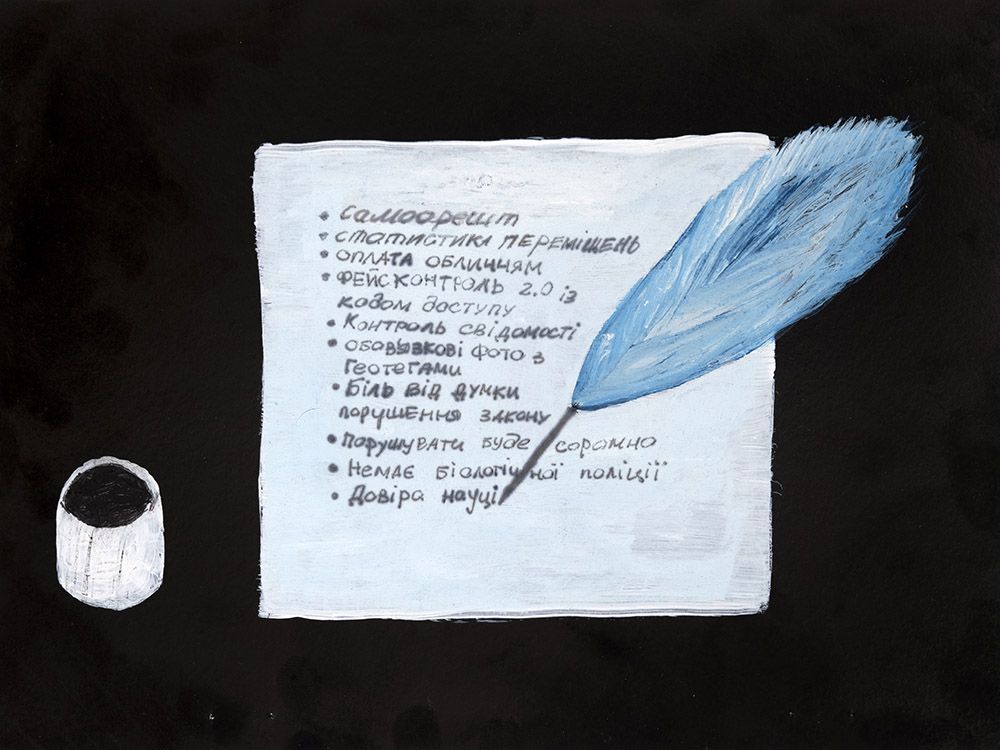 • самоарешт
• статистика переміщень
• оплата обличчям
• фейсконтроль 2.0 із
кодом доступу
• Контроль свідомості
• обовʼязкові фото з
Геотегами
• Біль від думки
порушення закону
• Порушувати буде соромно
• Немає біологічної поліції
• Довіра науці